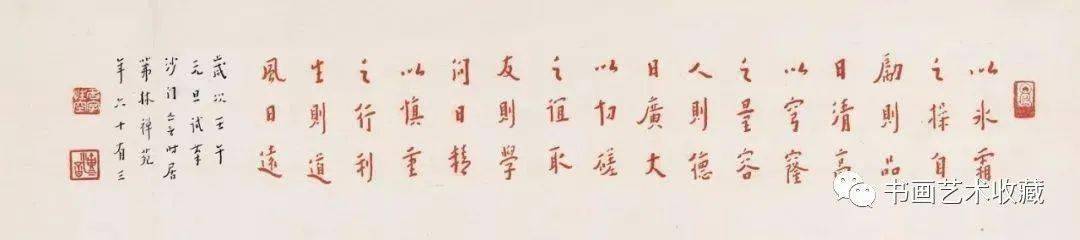 以冰霜
之操自
勵則品
日清高
以穹窿
之量容
人則德
日廣大
以切磋
之誼取
友則學
問日精
以慎重
之行利
生則道
風日遠
歲次壬午
元旦試筆
沙门亡言时居
茀林禅苑
年六十有三
书画艺术收藏